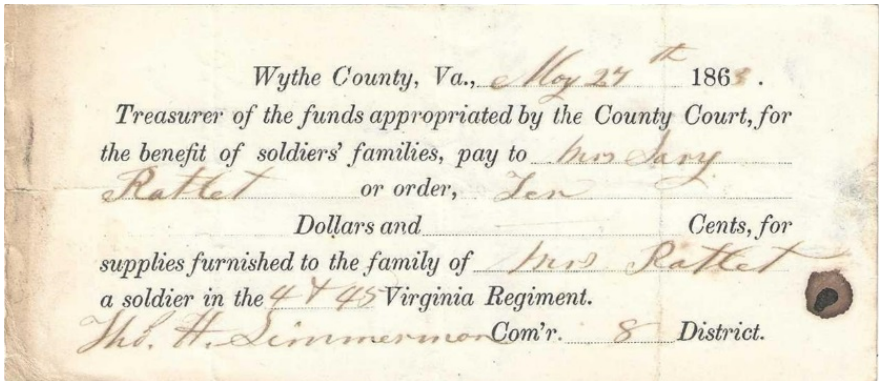 Wythe County, Va., May 27th 1863.
Treasurer of the funds appropriated by the County Court, for
the benefit of soldiers' families, pay to Mrs Sary
Ratlet or order, Ten
Dollars and Cents, for
supplies furnished to the family of Mrs Ratlet
a soldier in the 4 & 45 Virginia Regiment.
Tho. H. Simmerman Com'r. 8 District.